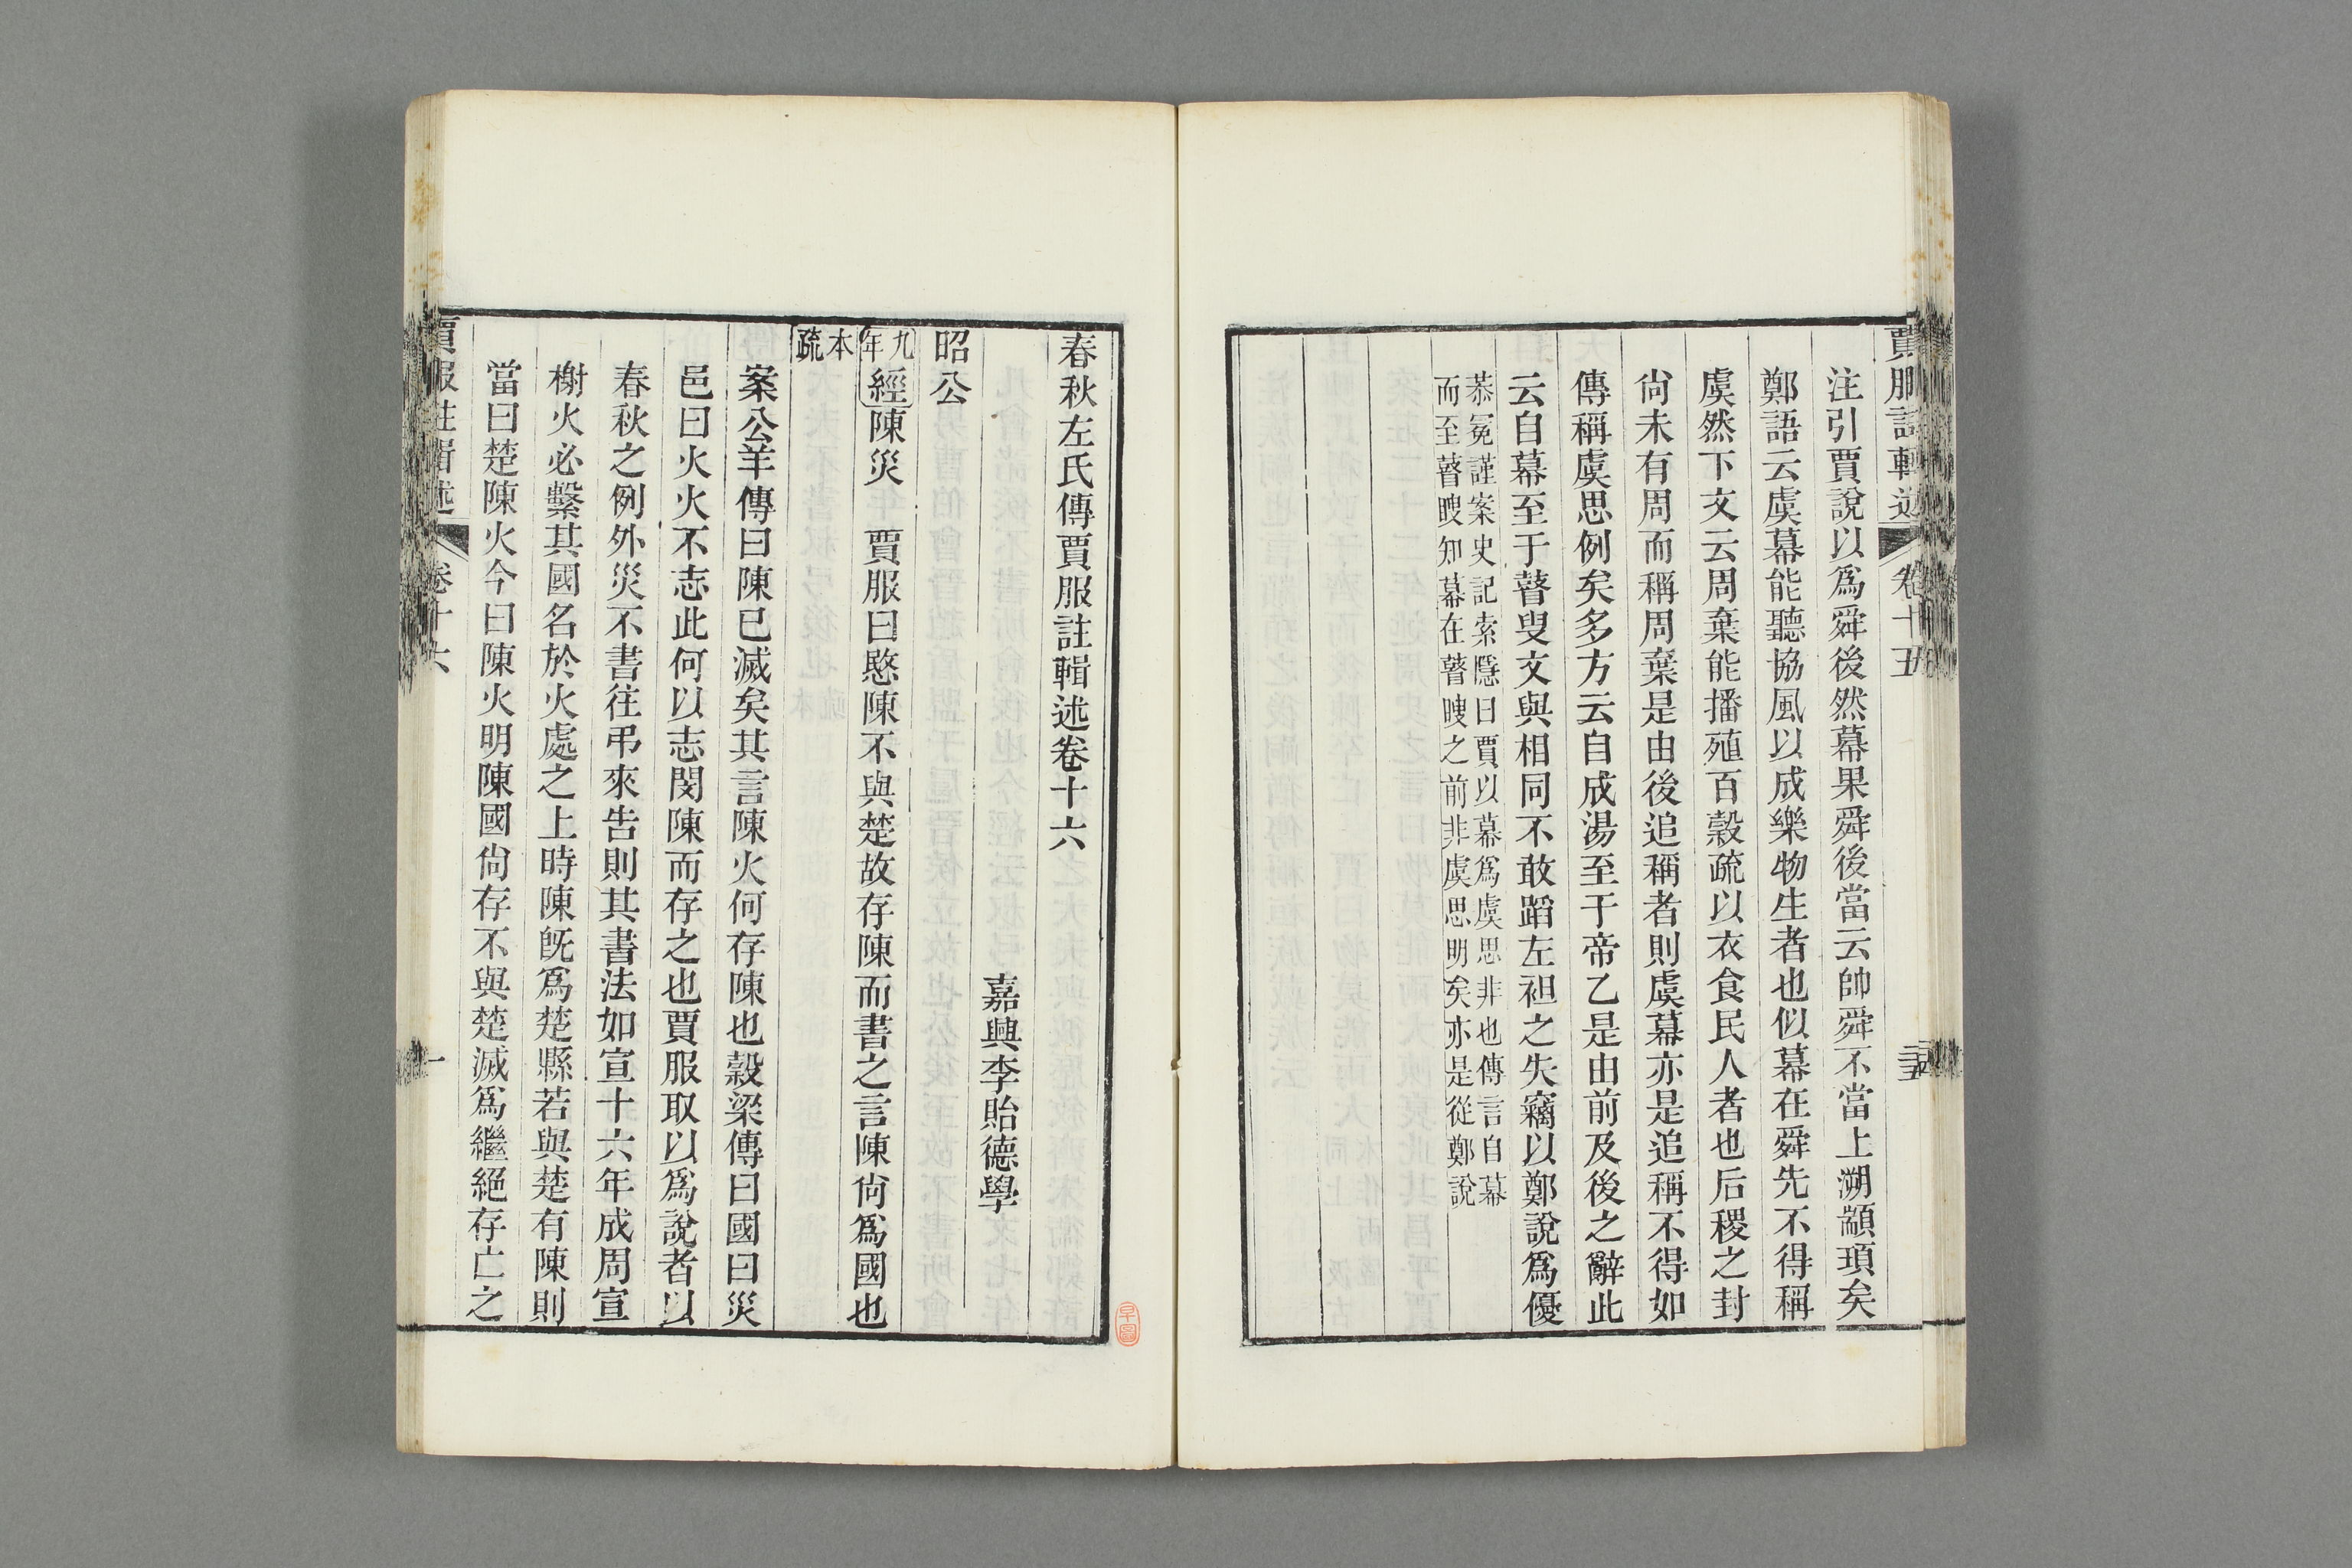 賈服註輯述 卷十五
注引賈說以爲舜後然幕果舜後當云帥舜不當上溯顓頊矣
鄭語云虞幕能聽協風以成樂物生者也似幕在舜先不得稱
虞然下文云周棄能播殖百穀疏以衣食民人者也后稷之封
尙未有周而稱周棄是由後追稱者則虞幕亦是追稱不得如
傳稱虞思例矣多方云自成湯至于帝乙是由前及後之辭此
云自幕至于瞽叟文與相同不敢蹈左袒之失竊以鄭說爲優
恭冕謹案史記索隱曰賈以幕爲虞思非也傳言自幕
而至瞽瞍知幕在瞽瞍之前非虞思明矣亦是從鄭說
春秋左氏傳賈服註輯述卷十六
嘉興李貽德學
昭公
九年經陳災 賈服曰愍陳不與楚故存陳而書之言陳尙爲國也
本疏
案公羊傳曰陳已滅矣其言陳火何存陳也穀梁傳曰國曰災
邑曰火火不志此何以志閔陳而存之也賈服取以爲說者以
春秋之例外災不書往弔來告則其書法如宣十六年成周宣
榭火必繫其國名於火處之上時陳旣爲楚縣若與楚有陳則
當曰楚陳火今曰陳火明陳國尙存不與楚滅爲繼絕存亡之
賈服註輯述 卷十六 一